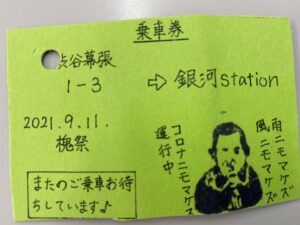 乗車券
渋谷幕張
1-3
⇨ 銀河station
2021.9.11.
槐祭
雨ニモマケズ
風ニモマケズ
コロナニモマケズ
運行中
またのご乗車お待
ちしています♪